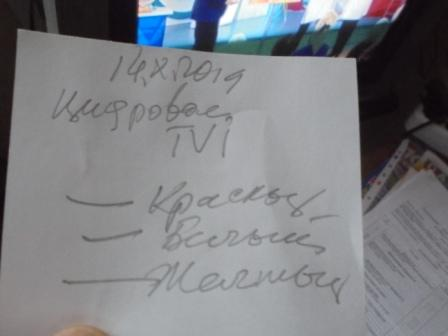 14.X.2019
Цифровое
TVi
— Красный
— Белый
— Желтый